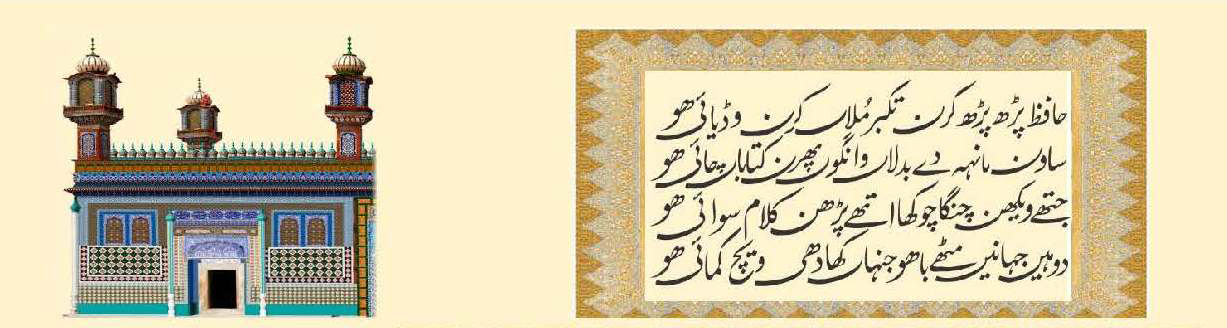 حافظ پڑھ پڑھ کرن تکبر مُلاں کرن وڈیائی ھو
ساون مانہہ دے بدلاں وانگوں پھرن کتاباں چائی ھو
جتھے ویکھن چنگا چوکھا اتھے پڑھن کلام سوائی ھو
دوہیں جہانیں مٹھے باھو جنہاں کھادھی ویچ کمائی ھو